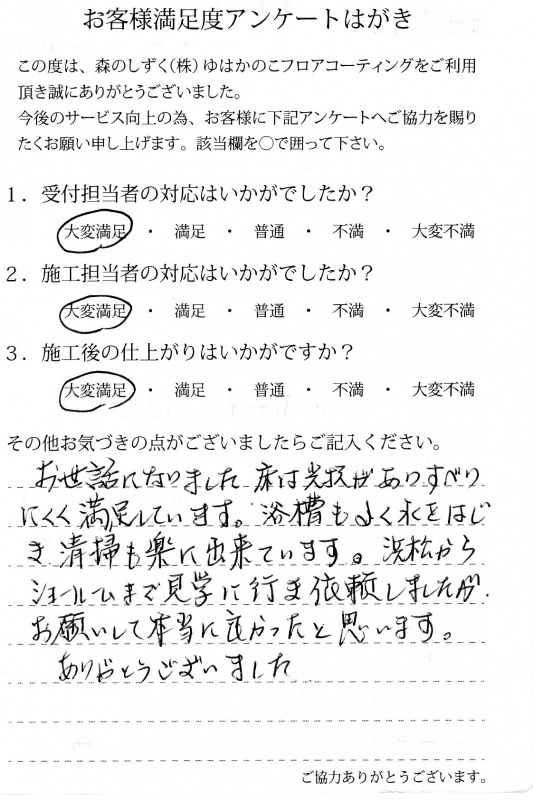 お客様満足度アンケートはがき
この度は、森のしずく(株)ゆはかのこフロアコーティングをご利用
頂き誠にありがとうございました。
今後のサービス向上の為、お客様に下記アンケートへご協力を賜り
たくお願い申し上げます。該当欄を○で囲って下さい。
1．受付担当者の対応はいかがでしたか？
大変満足 ・ 満足 ・ 普通 ・ 不満 ・ 大変不満
2．施工担当者の対応はいかがでしたか？
大変満足 ・ 満足 ・ 普通 ・ 不満 ・ 大変不満
3．施工後の仕上がりはいかがですか？
大変満足 ・ 満足 ・ 普通 ・ 不満 ・ 大変不満
その他お気づきの点がございましたらご記入ください。
お世話になりました 床は光沢がありすべり
にくく満足しています。浴槽もよく水をはじ
き清掃も楽に出来ています。浜松から
ショールームまで見学に行き依頼しましたが
お願いして本当に良かったと思います。
ありがとうございました
ご協力ありがとうございます。